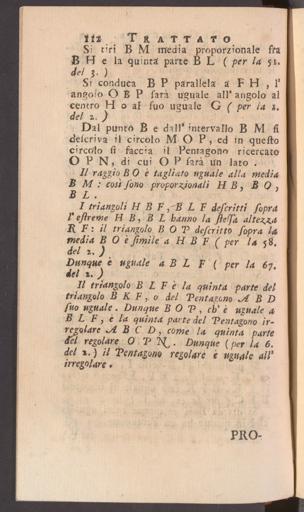 112 TRATTATO
Si tiri B M media proporzionale fra
B H e la quinta parte B L ( per la 51.
del 3. )
Si conduca B P parallela a F H , l'
angolo O B P sarà uguale all' angolo al
centro H o al suo uguale G ( per la 2.
del 2. )
Dal punto B e dall' intervallo B M si
descriva il circolo M O P, ed in questo
circolo si faccia il Pentagono ricercato
O P N, di cui O P sarà un lato .
Il raggio B O è tagliato uguale alla media
B M : così sono proporzionali H B, B O,
B L .
I triangoli H B F, B L F descritti sopra
l'estreme H B, B L hanno la stessa altezza
R F : il triangolo B O P descritto sopra la
media B O è simile a H B F ( per la 58.
del 2. )
Dunque è uguale a B L F ( per la 67.
del 2. )
Il triangolo B L F è la quinta parte del
triangolo B K F, o del Pentagono A B D
suo uguale . Dunque B O P, ch' è uguale a
B L F, è la quinta parte del Pentagono ir-
regolare A B C D, come la quinta parte
del regolare O P N . Dunque ( per la 6.
del 2. ) il Pentagono regolare è uguale all'
irregolare .
PRO-